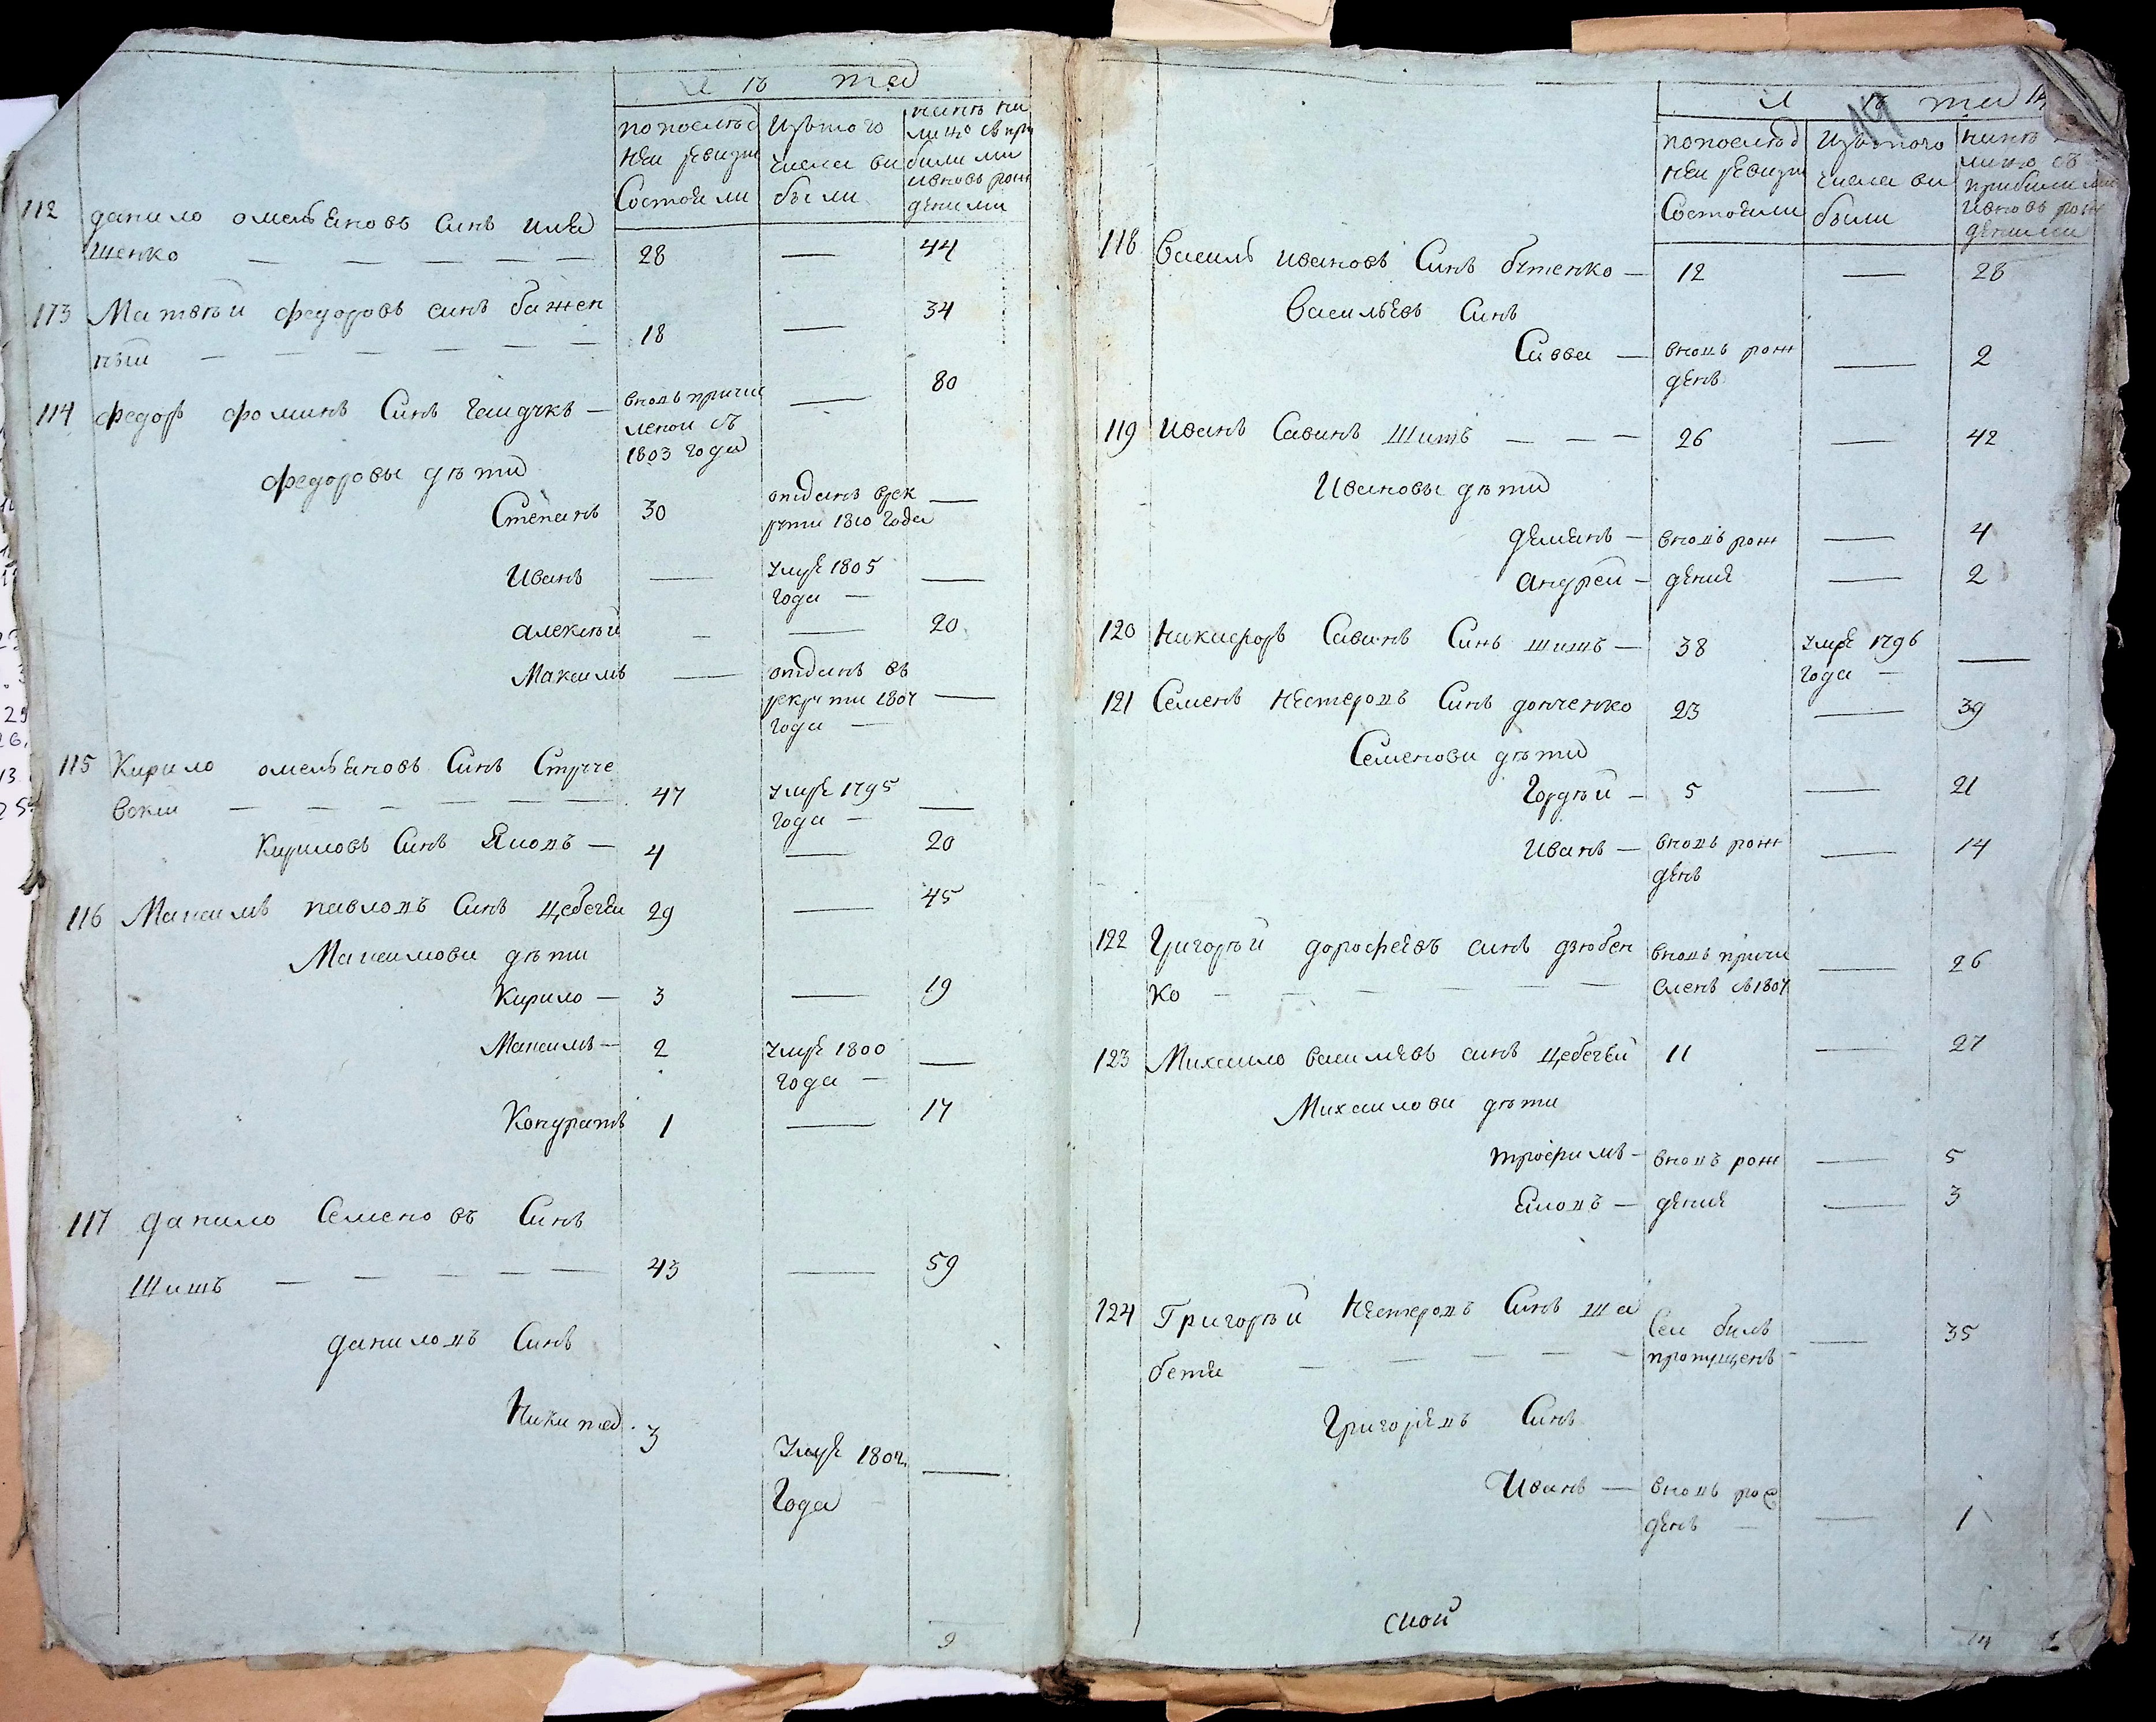 Лѣта
попослѣд
ней ревизи
Состояли
Изътого
числа ви
были
нынѣ на
лицо съ при
былими
ивновь рож
деними
112 данило омельяновъ Синъ Илья
шенко — — — — — 28 — 44
113 Матвѣй федоровъ синъ бажен
ный — — — — — — 18 — 34
114 федоръ фоминъ Синъ гайдукъ — вновь причи
сленой съ
1803 года — 80
федоровы дѣти
Степанъ 30 отданъ врек
рути 1810 года —
Иванъ — умре 1805
года — —
алексѣй — — 20
Максимъ — отданъ въ
рекрути 1807
года — —
115 Кирило омельяновъ Синъ Струче
вский — — — — — — 47 умре 1795
года — —
Кириловъ Синъ Яковъ — 4 — 20
116 Максимъ павловъ Синъ Цебегей 29 — 45
Максимови дѣти
Кирило — 3 — 19
Максимъ — 2 умре 1800
года — —
Кондратъ 1 — 17
117 данило Семеновъ Синъ
Шишъ — — — — — 43 — 59
даниловъ Синъ
Никита 3 умре 1804
Года —
9
19
Лѣта 14
попослѣд
ней ревизи
Состояли
Изътого
числа ви
были
нинѣ на
лицо съ
прибилими
ивновь рож
денними
118 Василь ивановъ Синъ бутенко — 12 — 28
Васильевъ Синъ
Савва — вновь рож
денъ — 2
119 Иванъ Савинъ Шишъ — — — 26 — 42
Ивановы дѣти
демянъ — вновь рож — 4
андрей — дения — 2
120 Никифоръ Савинъ Синъ шишъ — 38 умре 1796
года — —
121 Семенъ Нестеровъ Синъ донченко 23 — 39
Семенови дѣти
Гордѣй — 5 — 21
Иванъ — вновь рож
денъ — 14
122 Григорѣй дорофеевъ синъ дзюбен
ко — — — — — вновь причи
сленъ съ 1807 — 26
123 Михайло васильевъ синъ Цебегей 11 — 27
Михайлови дѣти
трофимъ — вновь рож — 5
Яковъ — дения — 3
124 Григорѣй Нестеровъ Синъ ша
бетя — — — — — Сей билъ
пропущенъ — 35
Григоревъ Синъ
Иванъ — вновь рож
денъ — — 1
ской
14